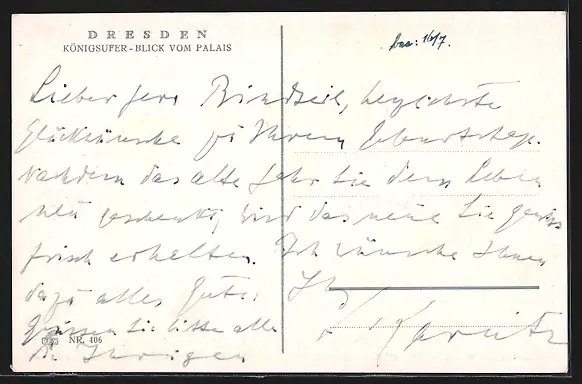 DRESDEN
KÖNIGSUFER-BLICK VOM PALAIS
bea: 16/7.
Lieber Herr Bindseil, herzlichste
Glückwünsche zu Ihrem Geburtstage.
Nachdem das alte Jahr Sie dem Leben
neu geschenkt, wird das neue Sie gewiss
frisch erhalten. Ich wünsche Ihnen
dazu alles Gute. Ihr
Grüssen Sie bitte alle
NR. 406
Ihrigen